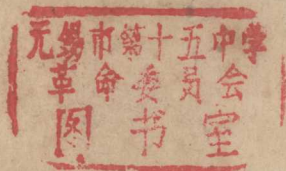 无锡市第十五中学
革命委员会
图书室